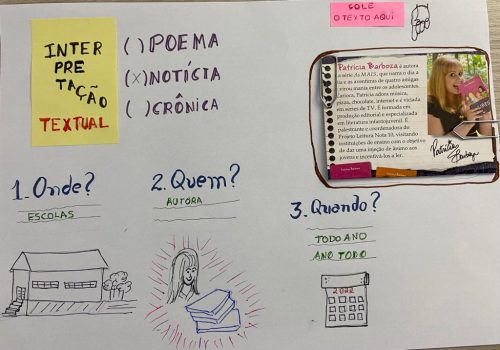 INTER
PRE
TAÇÃO
TEXTUAL
( ) POEMA
(X) NOTÍCIA
( ) CRÔNICA
COLE
O TEXTO AQUI
Patrícia Barboza é autora
a série As MAIS, que narra o dia a
tia e as aventuras de quatro amigas
rirou mania entre os adolescentes.
Carioca, Patrícia adora música,
pizza, chocolate, internet e é viciada
em séries de TV. É formada em
produção editorial e especializada
em literatura infantojuvenil. É
palestrante e coordenadora do
Projeto Leitura Nota 10, visitando
instituições de ensino com o objetivo
de dar uma injeção de ânimo aos
jovens e incentivá-los a ler.
Patrícia
Barboza
1. Onde?
ESCOLAS
2. Quem?
AUTORA
3. Quando?
TODO ANO
ANO TODO
2022